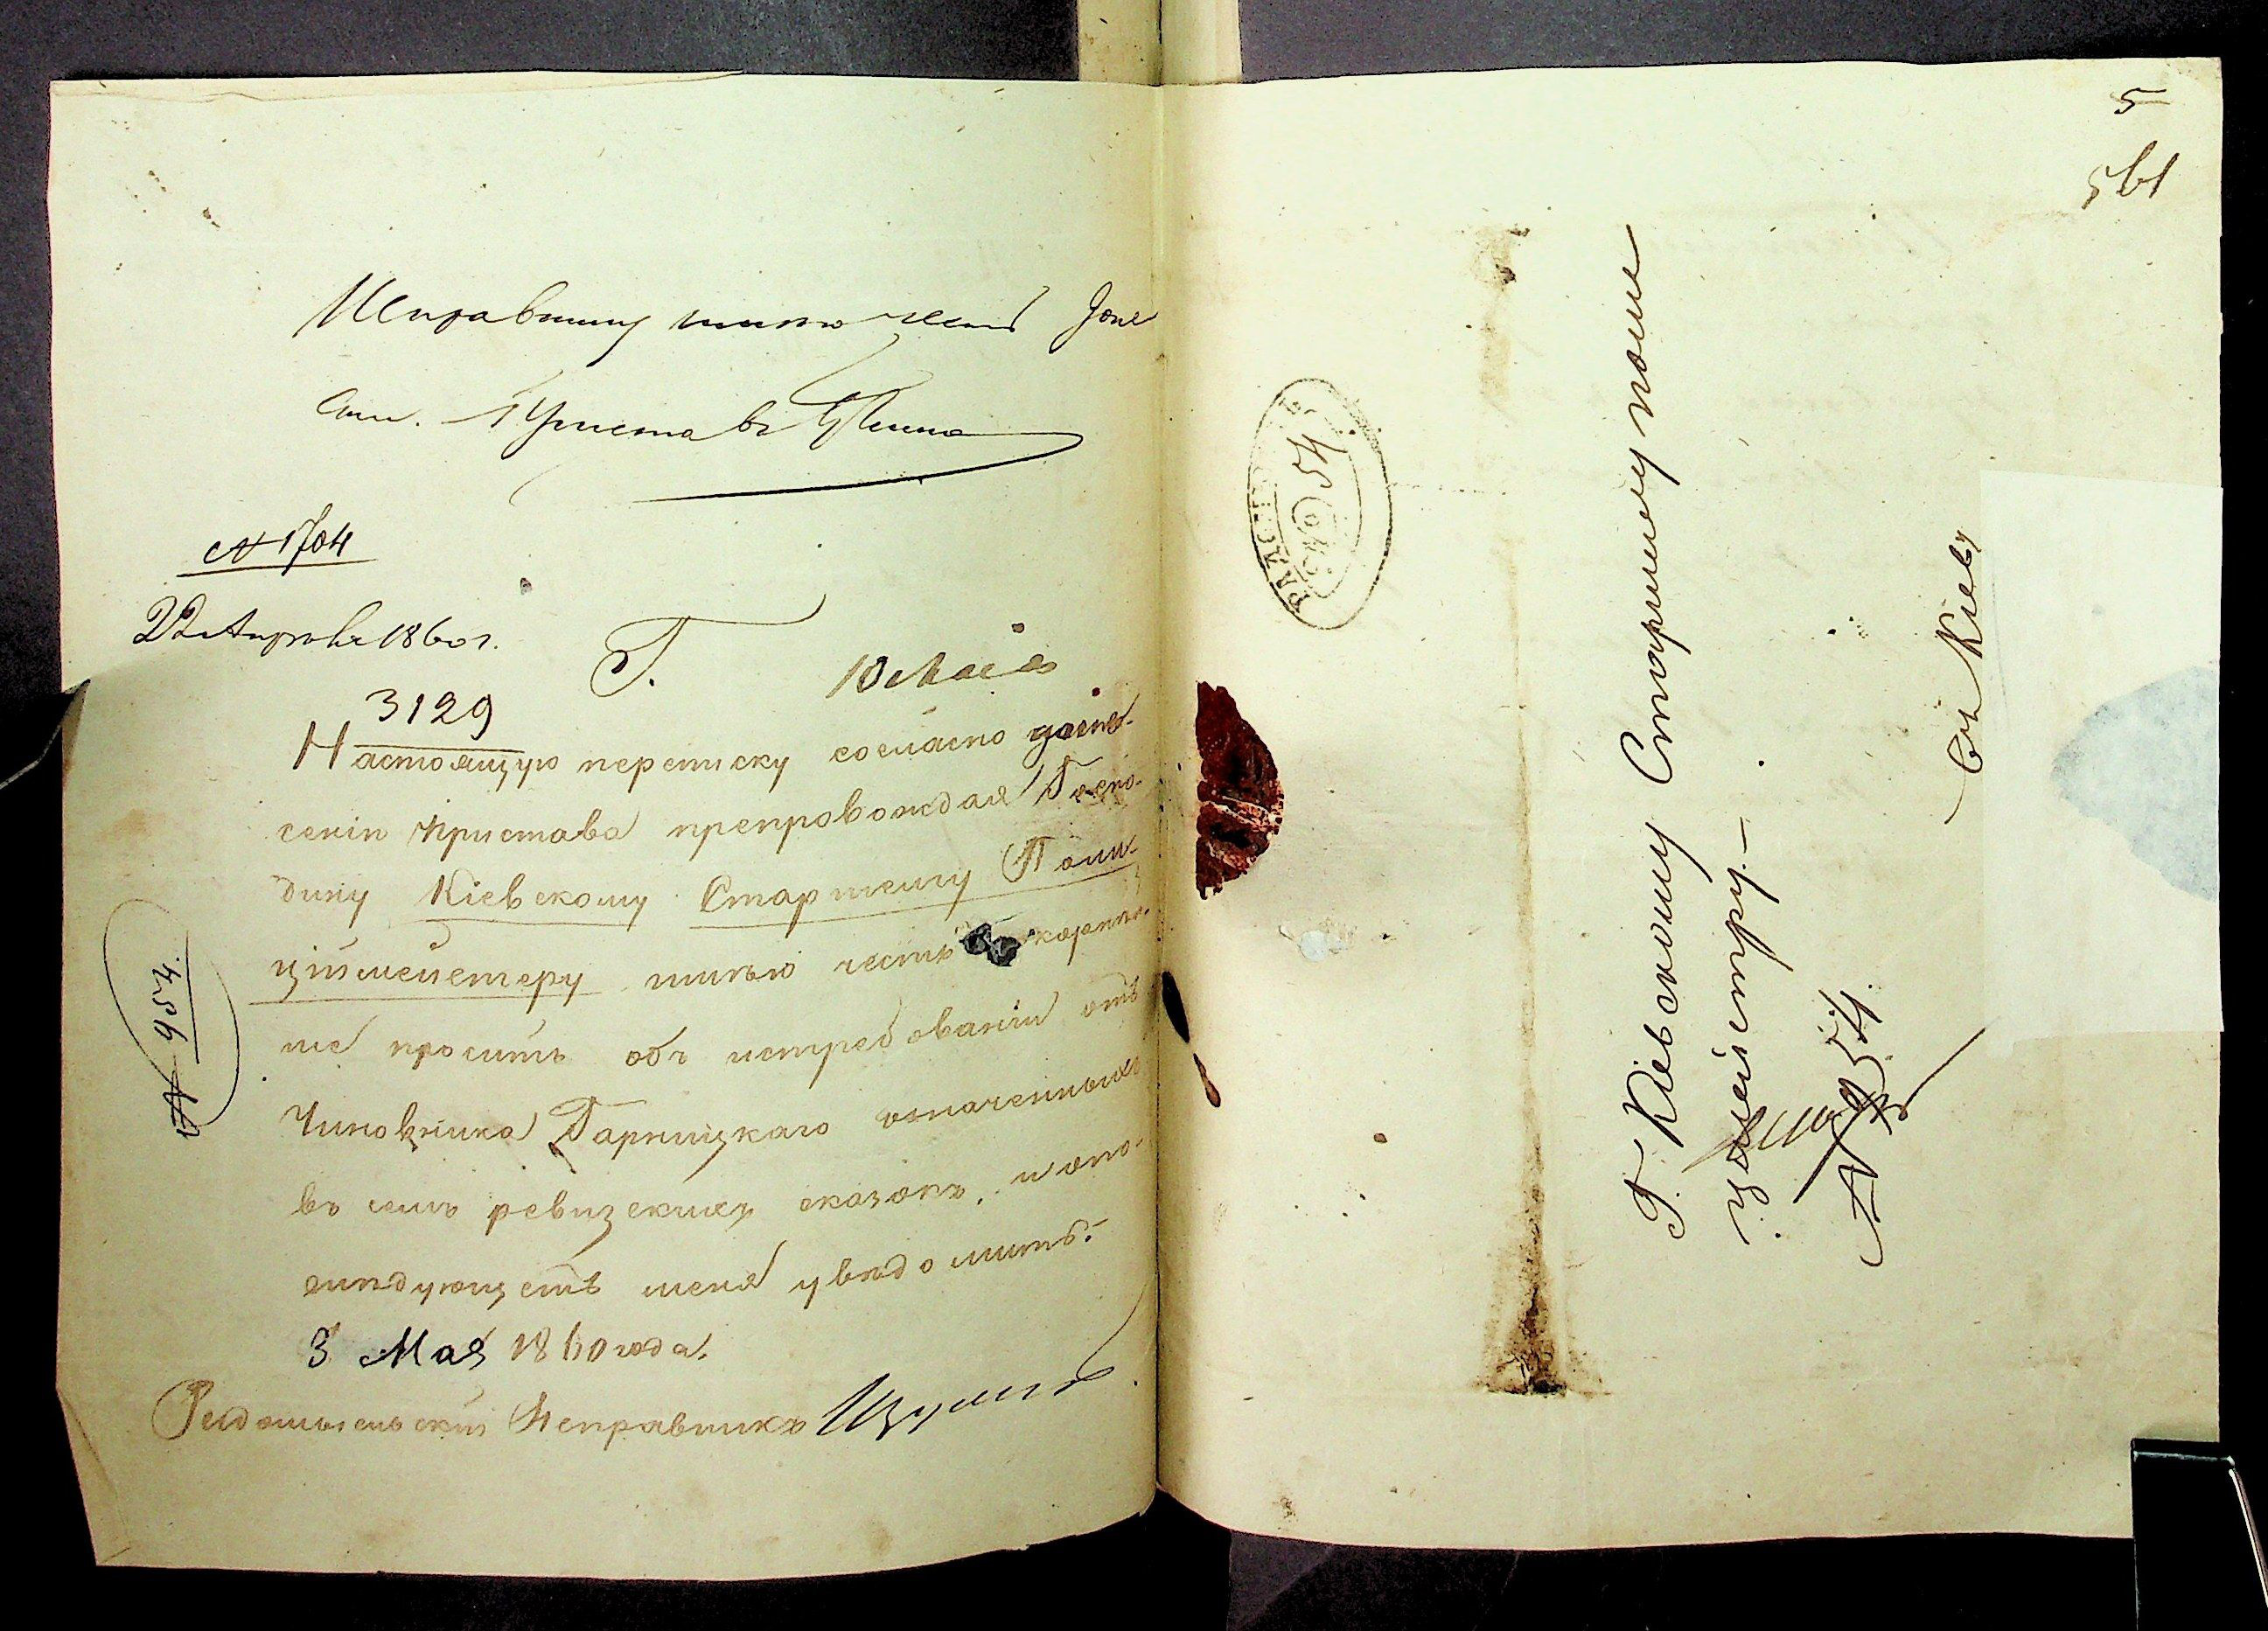 Исправнику имѣю честь доне
сти. Приставъ
№ 1704
22 Апрѣля 1860 г.
Г.
10 Мая
3129
Настоящую переписку согласно доне-
сенію Пристава препровождая Госпо-
дину Кіевскому Старшему Поли-
ціймейстеру имѣю честь покорнѣй-
ше просить объ истребованіи отъ
Чиновника Гарницкаго означенныхъ
въ семъ ревизскихъ сказокъ, и о по-
слѣдующемъ меня увѣдомить.
3 Мая 1860 года.
Радомысльскій Исправникъ
№ 954.
5
561
РАДОМЫ
Г. Кіевскому Старшему поли
ціймейстеру.—
№ 954.
въ Кіевъ